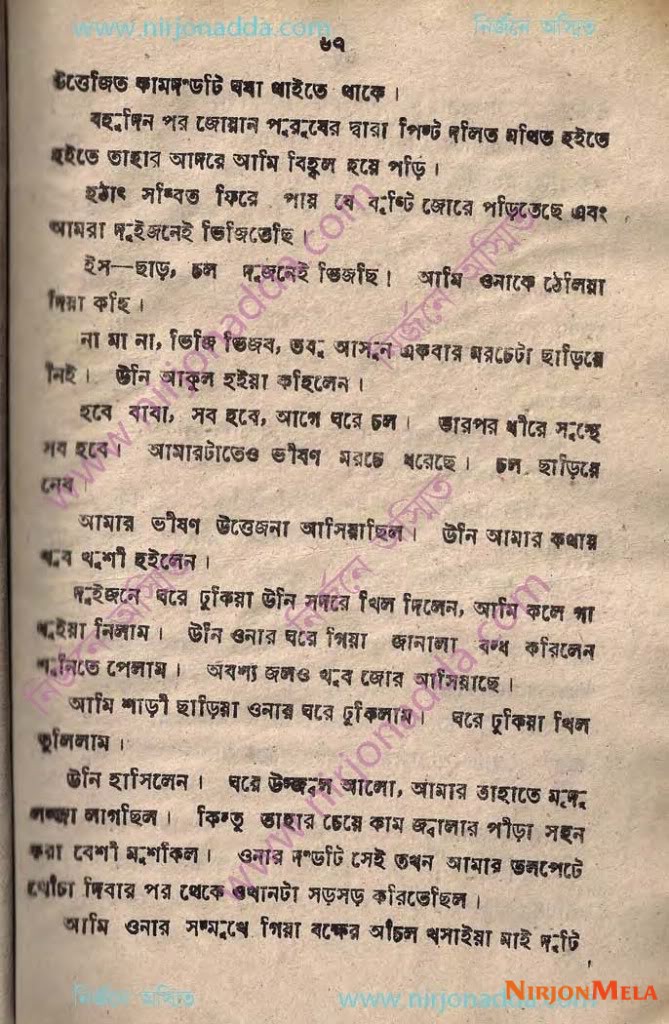 www.nirjonadda.com নির্জনে অস্মিত
৬৭
উত্তেজিত কামদণ্ডটি ঘষা খাইতে থাকে ।
বহুদিন পর জোয়ান পুরুষের দ্বারা পিষ্ট দলিত মথিত হইতে
হইতে তাহার আদরে আমি বিহ্বল হয়ে পড়ি ।
হঠাৎ সম্বিত ফিরে পায় যে বৃষ্টি জোরে পড়িতেছে এবং
আমরা দুইজনেই ভিজিতেছি ।
ইস—ছাড়, চল দুজনেই ভিজছি । আমি ওনাকে ঠেলিয়া
দিয়া কহি ।
না মা না, ভিজি ভিজব, তবু আসুন একবার মরচেটা ছাড়িয়ে
নিই । উনি আকুল হইয়া কহিলেন ।
হবে বাবা, সব হবে, আগে ঘরে চল । তারপর ধীরে সুস্থে
সব হবে । আমারটাতেও ভীষণ মরচে ধরেছে । চল ছাড়িয়ে
নেব ।
আমার ভীষণ উত্তেজনা আসিয়াছিল । উনি আমার কথায়
খুব খুশী হইলেন ।
দুইজনে ঘরে ঢুকিয়া উনি সদরে খিল দিলেন, আমি কলে গা
ধুইয়া নিলাম । উনি ওনার ঘরে গিয়া জানালা বন্ধ করিলেন
শুনিতে পেলাম । অবশ্য জলও খুব জোর আসিয়াছে ।
আমি শাড়ী ছাড়িয়া ওনার ঘরে ঢুকিলাম । ঘরে ঢুকিয়া খিল
তুলিলাম ।
উনি হাসিলেন । ঘরে উজ্জ্বল আলো, আমার তাহাতে মৃদু
লজ্জা লাগছিল । কিন্তু তাহার চেয়ে কাম জ্বালার পীড়া সহন
করা বেশী মুশকিল । ওনার দণ্ডটি সেই তখন আমার তলপেটে
খোঁচা দিবার পর থেকে ওখানটা সড়সড় করিতেছিল ।
আমি ওনার সম্মুখে গিয়া বক্ষের আঁচল খসাইয়া মাই দুটি
www.nirjonadda.com
নির্জনে অস্মিত
নির্জনে অস্মিত
নির্জনে অস্মিত
www.nirjonadda.com
NIRJONMELA
নির্জনে অস্মিত www.nirjonadda.com